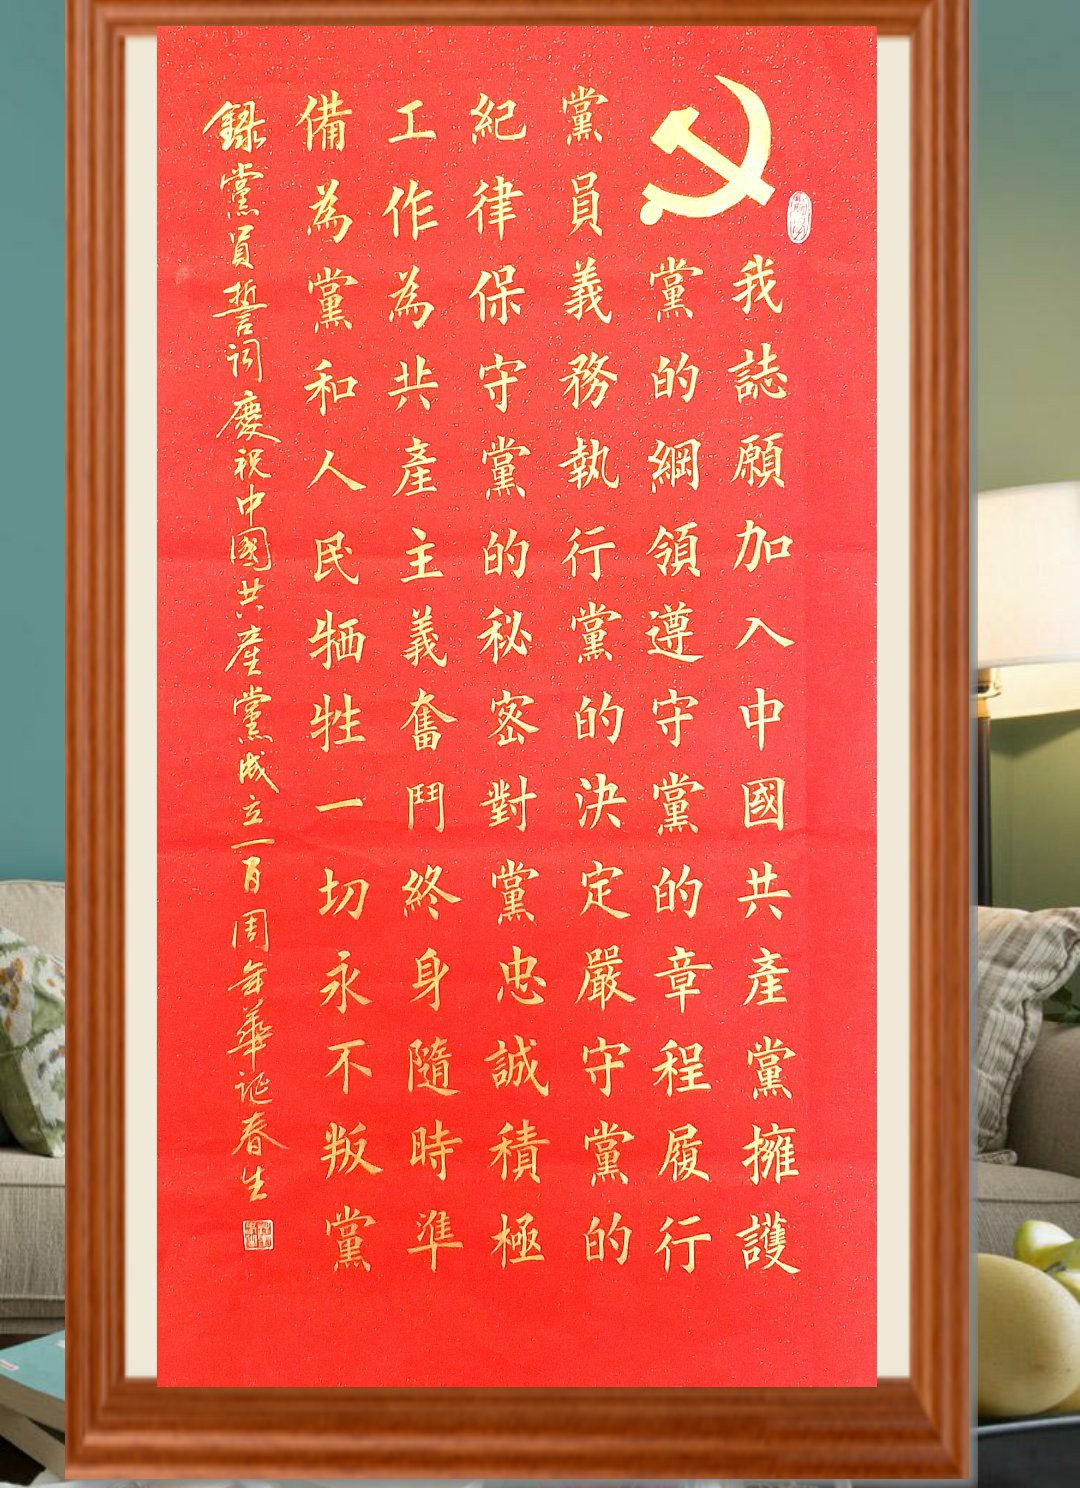 我誌願加入中國共產黨擁護
黨的綱領遵守黨的章程履行
黨員義務執行黨的決定嚴守黨的
紀律保守黨的秘密對黨忠誠積極
工作為共產主義奮鬥終身隨時準
備為黨和人民牺牲一切永不叛黨
錄黨員誓词慶祝中國共產黨成立一百周年華诞春生